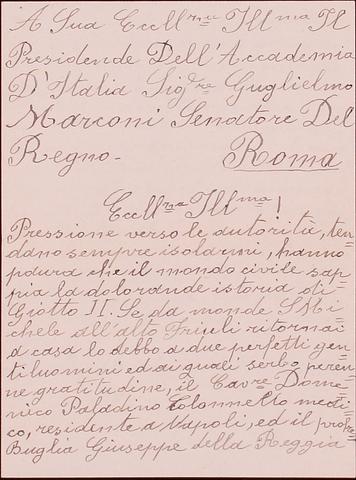 A Sua Eccll.nza Ill.ma Il
Presidende Dell'Accademia
D'Italia Sig.re Guglielmo
Marconi Senatore Del
Regno-      Roma
Eccll.nza Ill.ma!
Pressione verso le autoritè, ten=
dano sempre isolarmi, hanno
paura che il mondo civile sap=
pia la dolorande istoria di
Giotto II. Se da monde S Mi=
chele all'alto Friuli ritornai
a casa lo debbo a due perfetti gen=
tiluomini ed ai quali serbo peren=
ne gratitudine, il Cav.re Dome=
nico Paladino Colonnello medi=
co, residente a Napoli, ed il prof.re
Buglia Giuseppe della Reggia